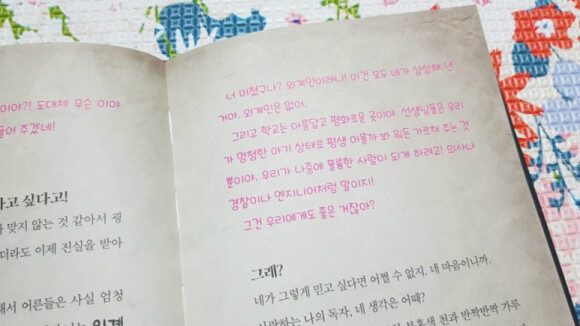 이야?! 도대체 무슨 이야
들어 주겠네!
하고 싶다고!
맞지 않는 것 같아서 굉
더라도 이제 진실을 받아
해서 어른들은 사실 엄청
너 미쳤구나? 외계인이라니! 이건 모두 네가 상상해 낸
거야. 외계인은 없어.
그리고 학교는 아름답고 평화로운 곳이야. 선생님들은 우리
가 멍청한 아기 상태로 평생 머물까 봐 뭐든 가르쳐 주는 것
뿐이야. 우리가 나중에 훌륭한 사람이 되게 하려고! 의사나
경찰이나 엔지니어처럼 말이지!
그건 우리에게도 좋은 거잖아?
그래?
네가 그렇게 믿고 싶다면 어쩔 수 없지. 네 마음이니까.
사랑하는 나의 독자, 네 생각은 어때?
천과 반짝반짝 가루